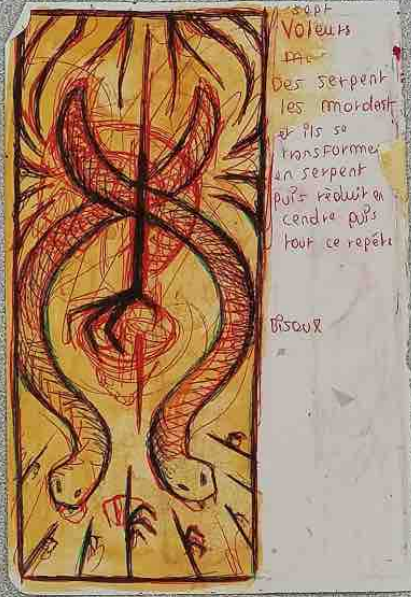 sept
Voleurs
Des serpent
les mordest
et ils se
transformer
en serpent
puis rèduit en
cendre puis
tout ce repéte
Bisoux